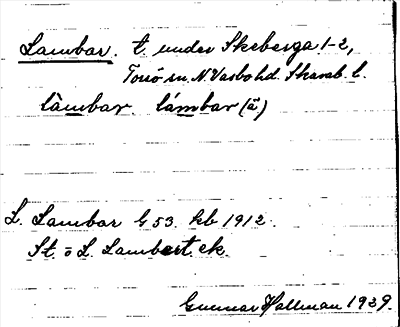 Lambar. t. under Skeberga 1-2,
Torö sn. N. Vasbo hd. Skarab. l.
làmbar lámbar (ā)
L. Lambar G 53. kb 1912.
St. o L. Lambert ek.
Gunnar Hallman 1929.